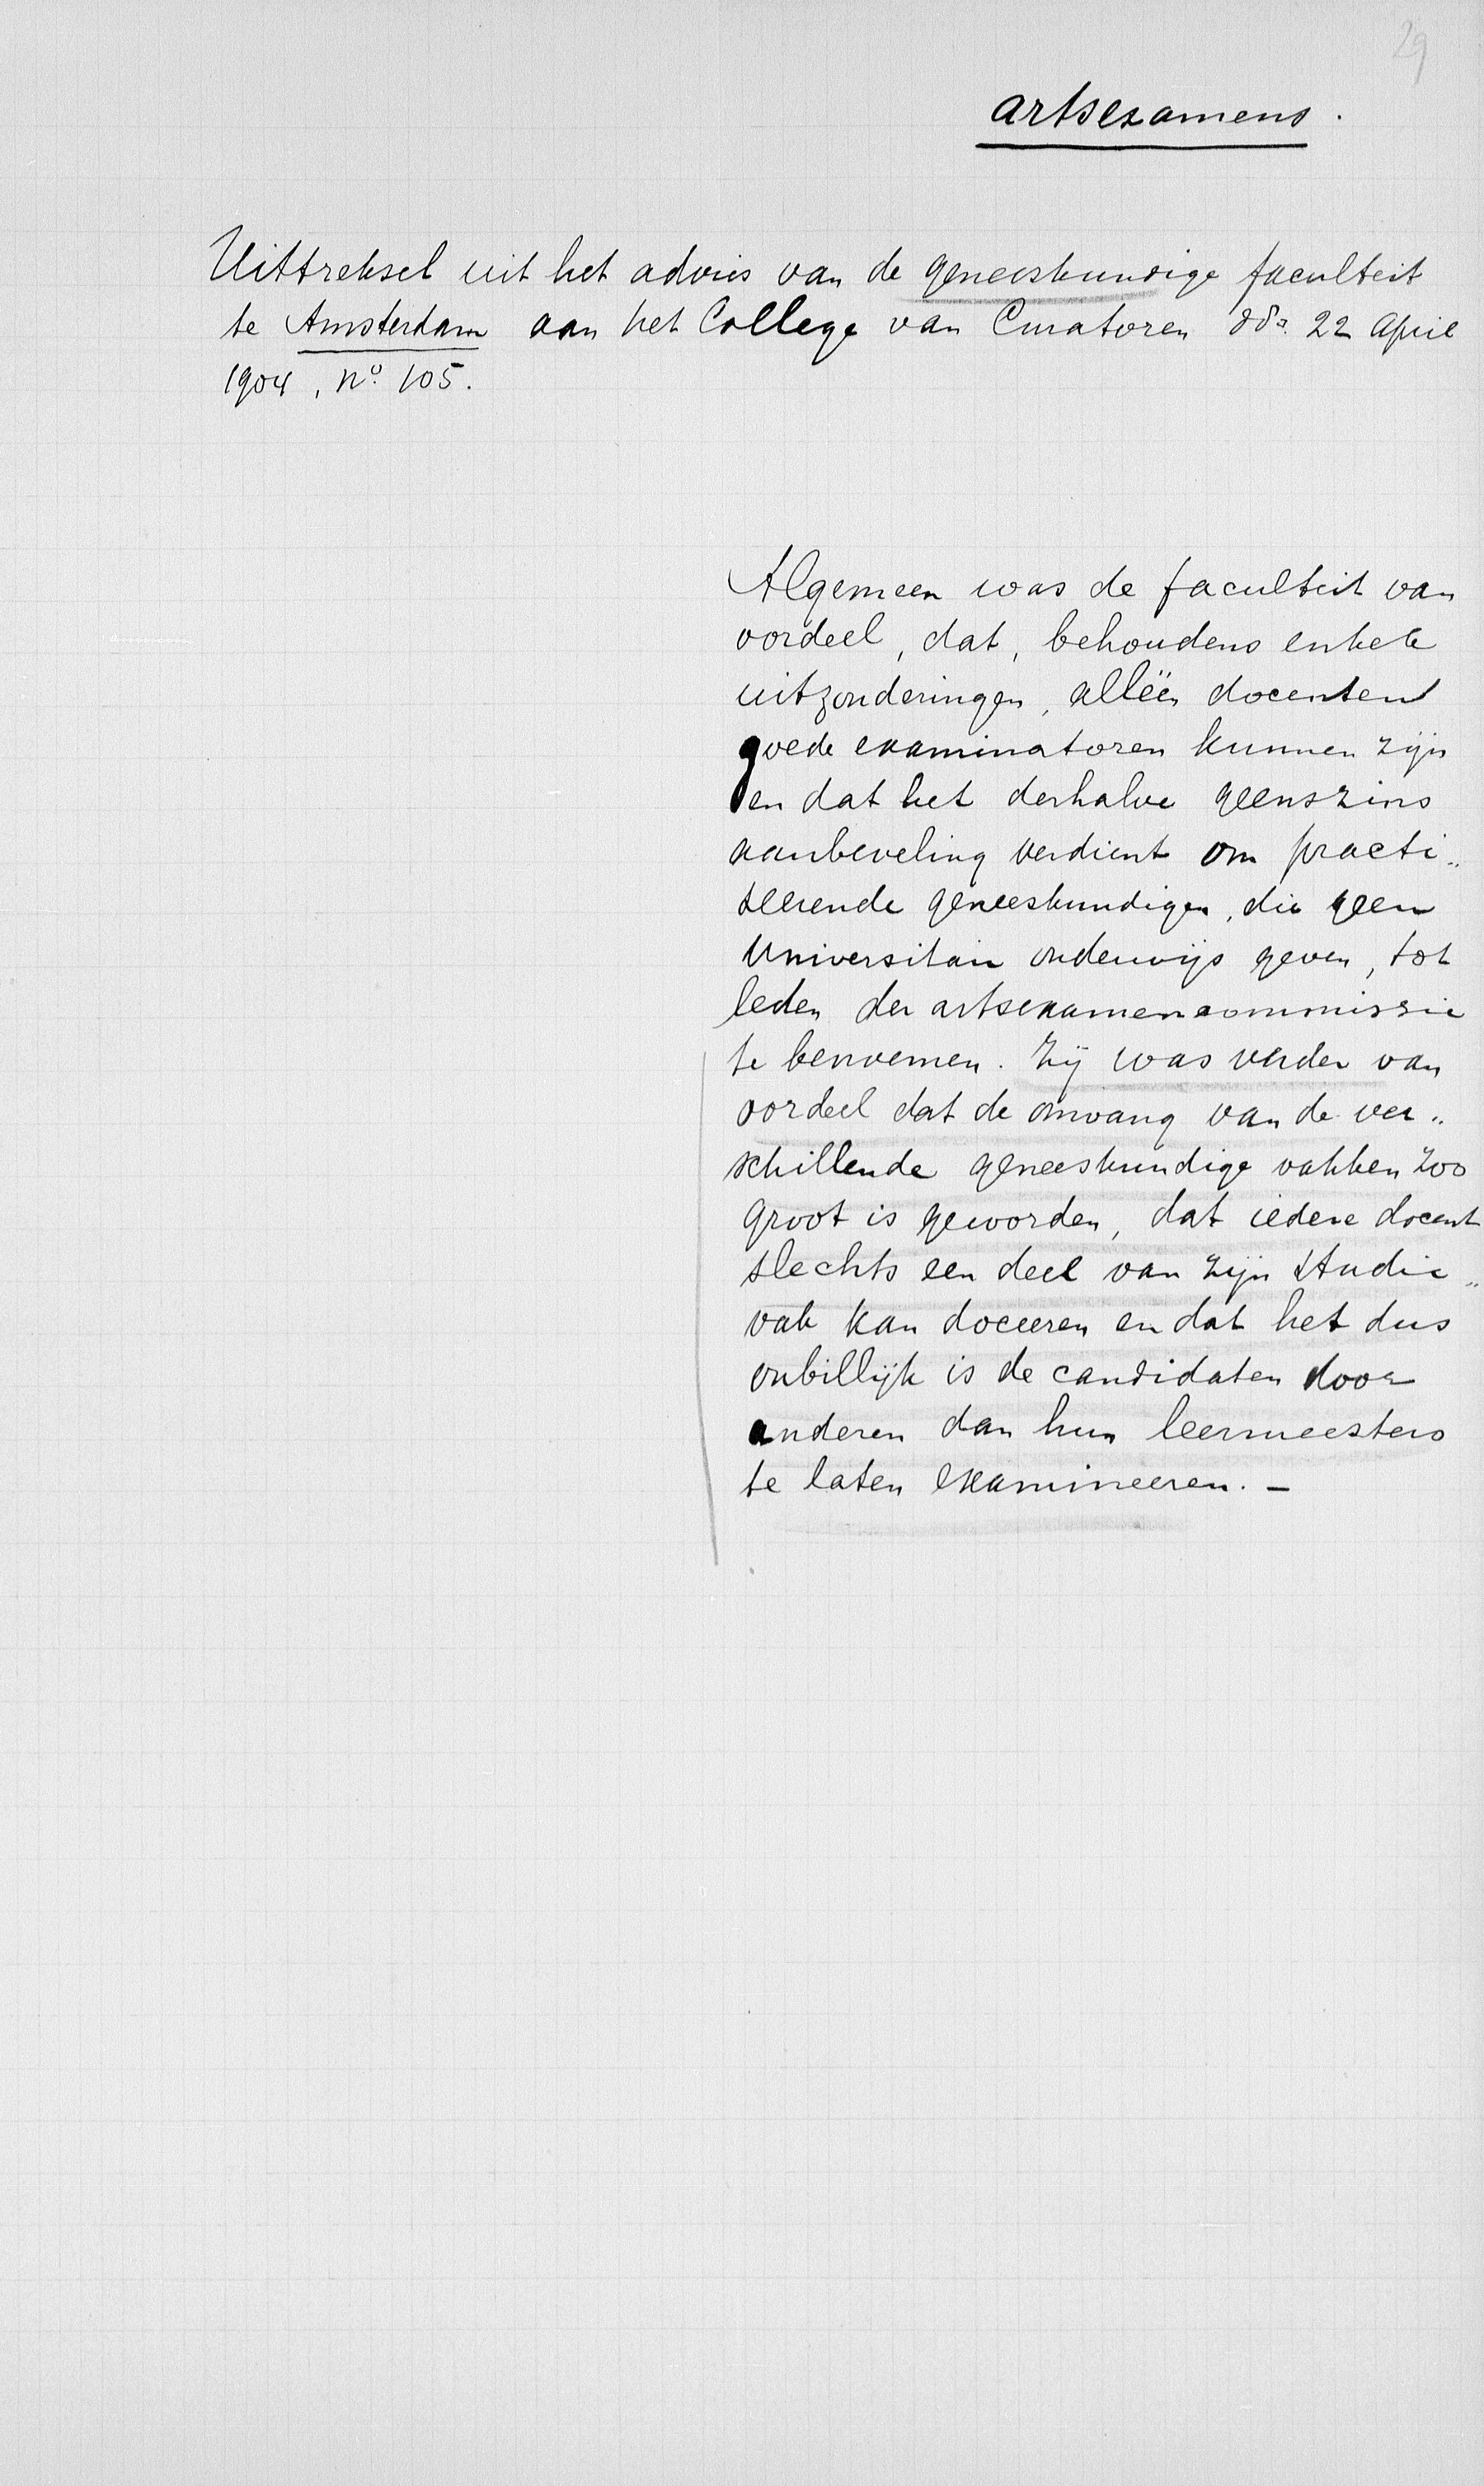 29
artsexamens.
Uittreksel uit het advies van de geneeskundige faculteit
te Amsterdam aan het College van Curatoren dd. 22 April
1904, no. 105.
Algemeen was de faculteit van
oordeel, dat, behoudens enkele
uitzonderingen, alleën docenten
goede examinatoren kunnen zijn
en dat het derhalve geenszins
aanbeveling verdient om practi„
seerende geneeskundigen, die geen
Universitair onderwijs geven, tot
leden der artsexamencommissie
te benoemen. Zij was verder van
oordeel dat de omvang van de ver„
schillende geneeskundige vakken zoo
groot is geworden, dat iedere docent
slechts een deel van zijn studie„
vak kan doceeren en dat het dus
onbillijk is de candidaten door
anderen dan hun leermeesters
te laten examineeren. —